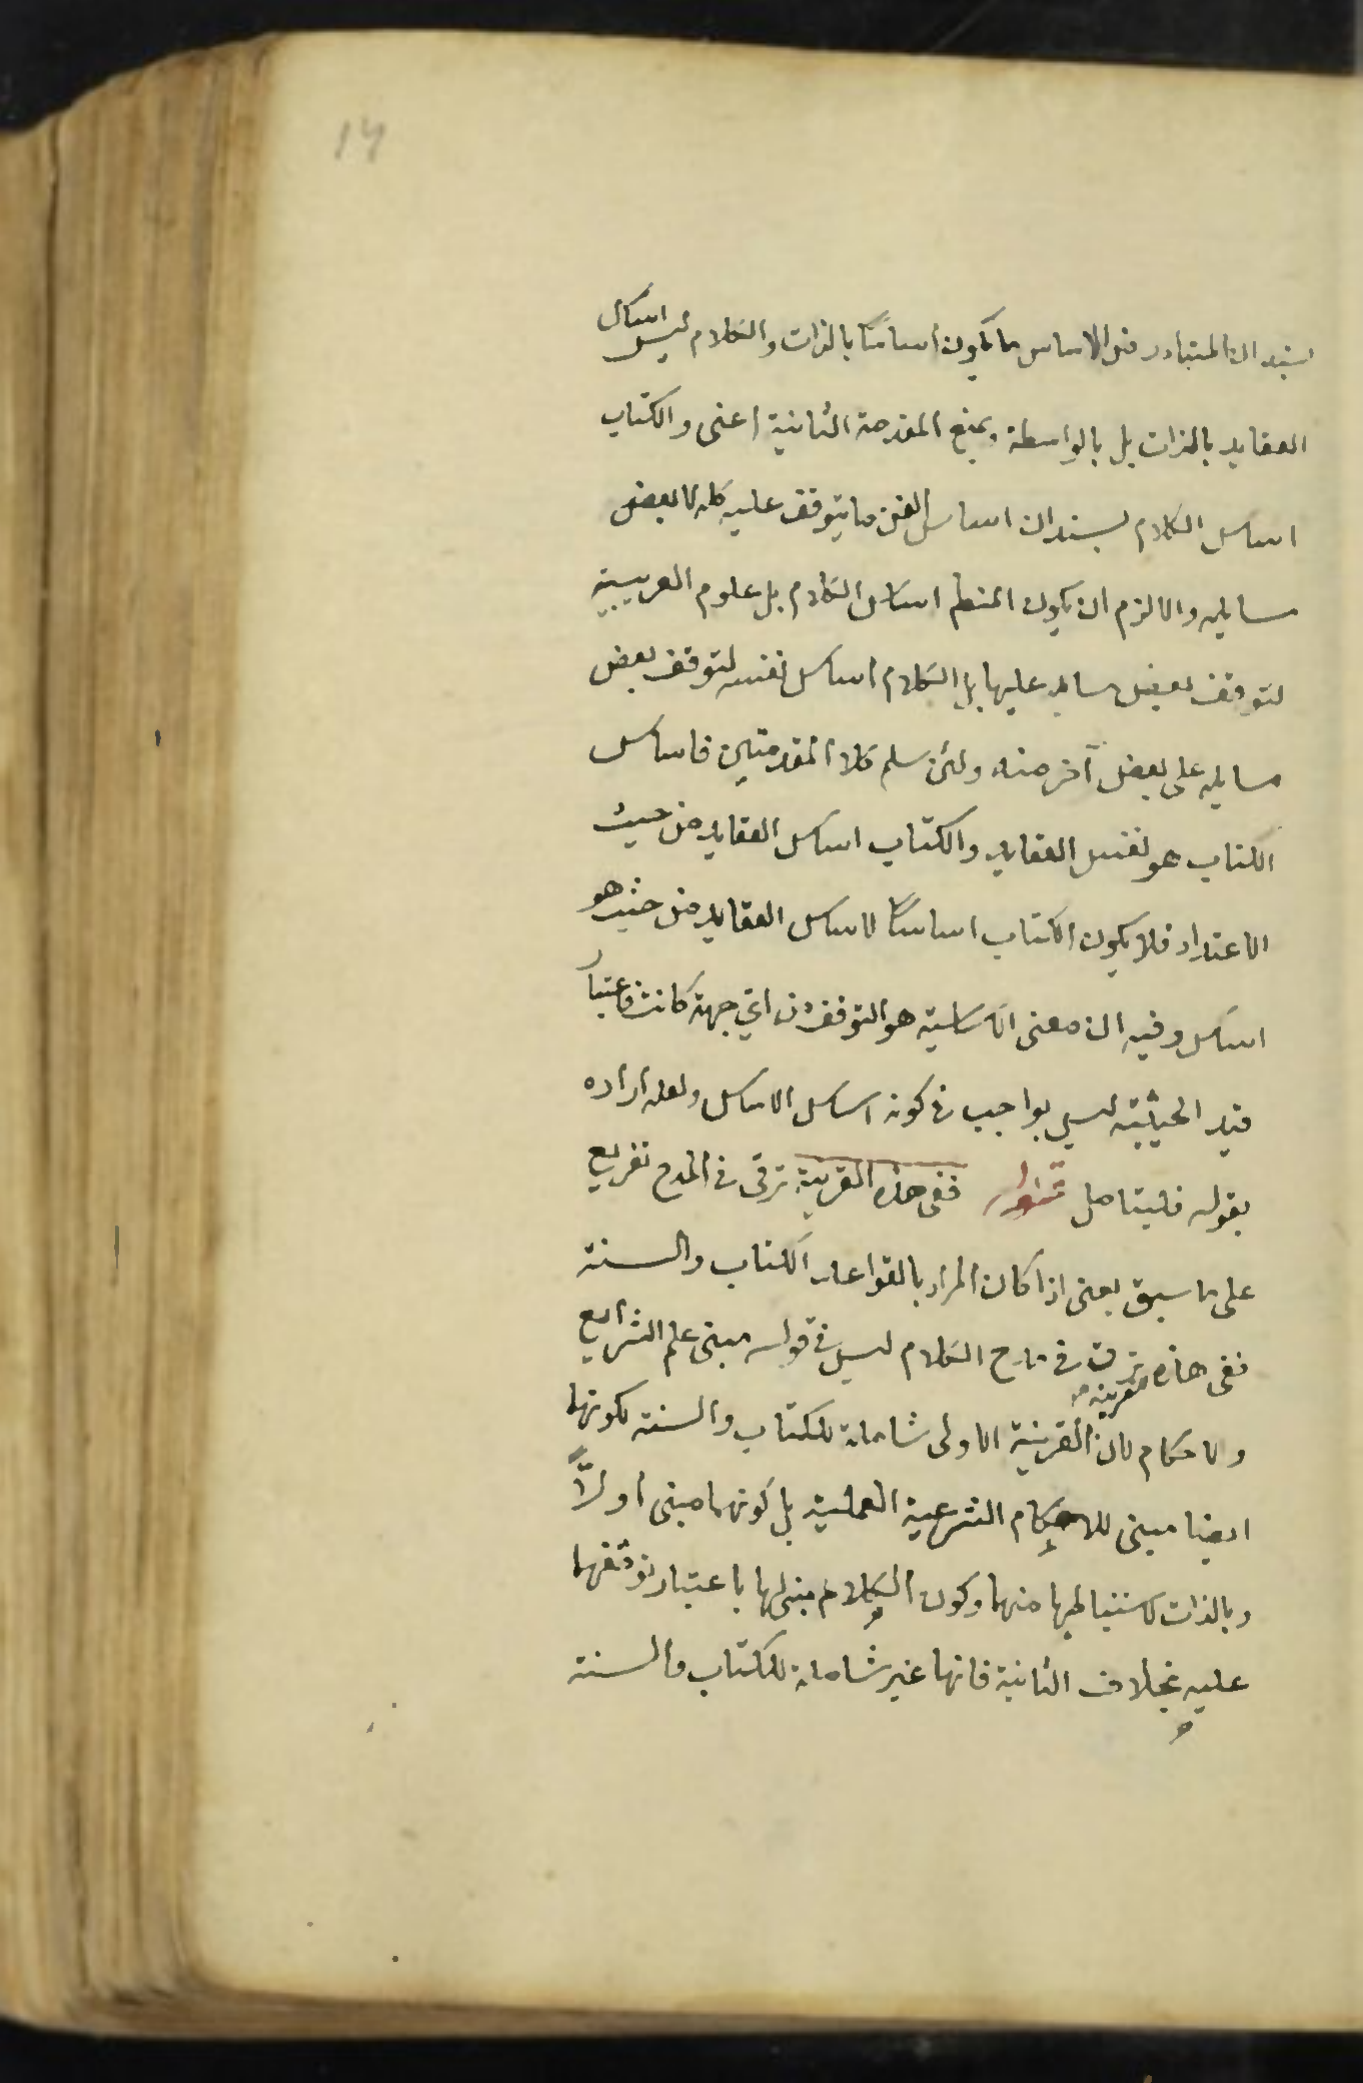 14
بسند ان المتبادر من الاساس ما يكون اساسًا بالذات والكلام ليس اساس
العقايد بالذات بل بالواسطة وبمنع المقدمة الثانية اعنى والكتاب
اساس الكلام بسند ان اساس الفن ما يتوقف عليه كله لا بعض
مسايله والا لزم ان يكون المنطق اساس الكلام بل علوم العربية
لتوقف بعض مسايله عليها بل الكلام اساس نفسه لتوقف بعض
مسايله على بعض آخر منه ولئن سلم كلا المقدمتين فاساس
الكتاب هو نفس العقايد والكتاب اساس العقايد من حيث
الاعتداد فلا يكون الكتاب اساسًا لاساس العقايد من حيث هو
اساس وفيه ان معنى الاساسية هو التوقف من اى جهة كانت فاعتبار
قيد الحيثية ليس بواجب فى كونه اساس الاساس ولعله اراده
بقوله فليتامل قوله ففى هذه القرينة ترقى فى المدح تفريع
على ما سبق يعنى اذا كان المراد بالقواعد الكتاب والسنة
ففى هذه القرينة ترق فى مدح الكلام ليس فى قوله مبنى علم الشرايع
والاحكام لان القرينة الاولى شاملة للكتاب والسنة لكونها
ايضا مبنى للاحكام الشرعية العملية بل كونهما مبنى اولًا
وبالذات لاستنباطها منهما وكون الكلام مبنى لها باعتبار توقفها
عليه بخلاف الثانية فانها غير شاملة للكتاب والسنة